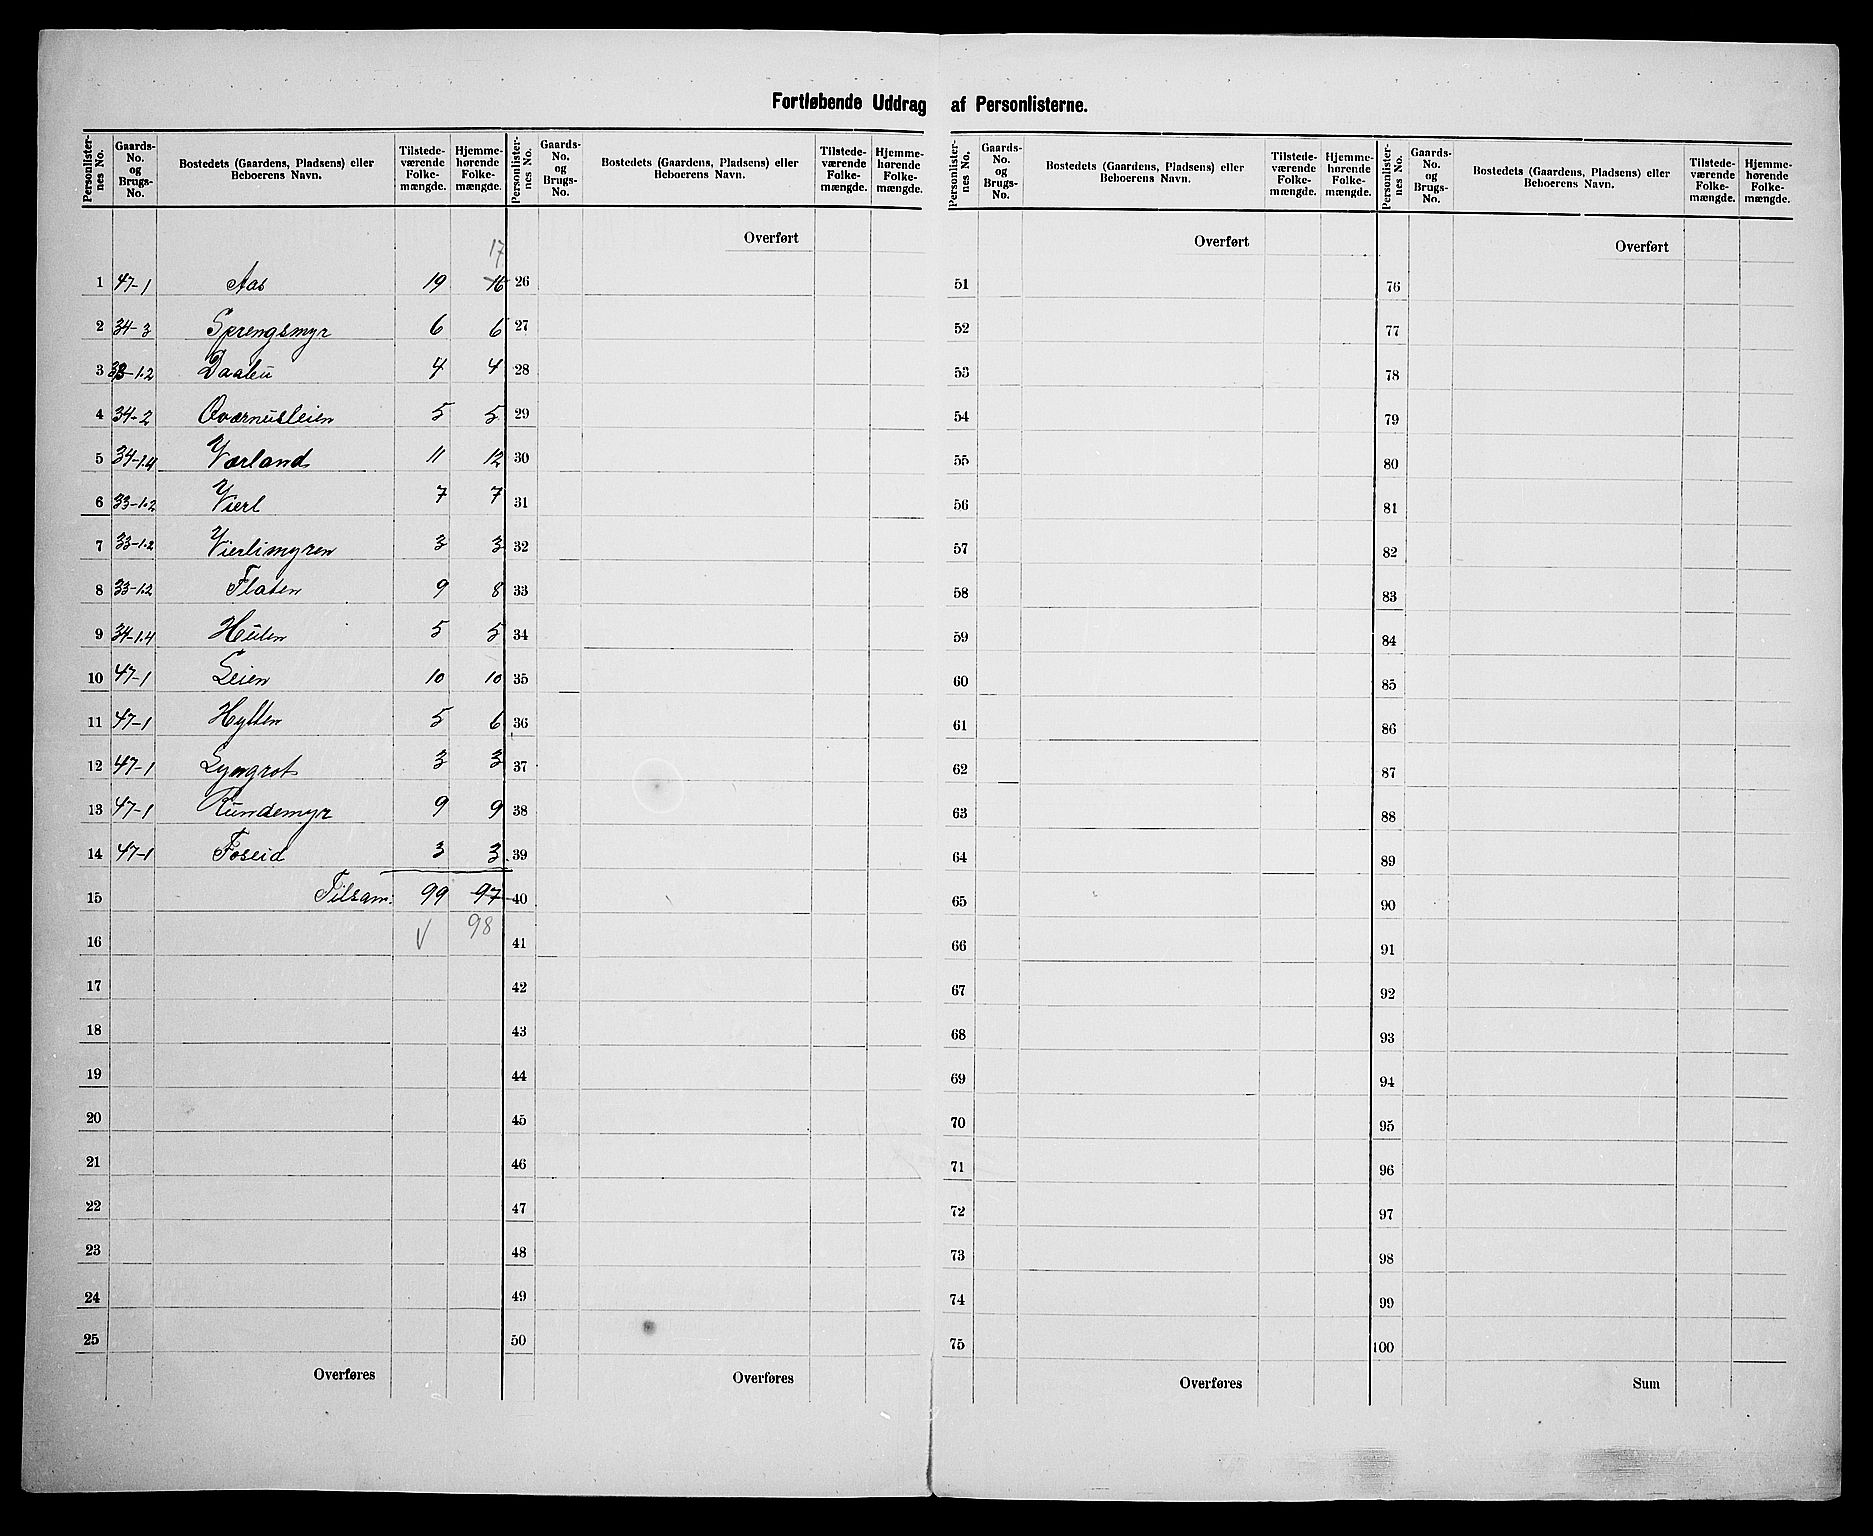 Fortløbende Uddrag af Personlisterne.
Personlister-nes No. Gaards-No. og Brugs-No. Bostedets (Gaardens, Pladsens) eller Beboerens Navn. Tilstede-værende Folke-mængde. Hjemme-hørende Folke-mængde.
17
1 47-1 Aas 19 16
2 34-3 Sprengsmyr 6 6
3 33-1.2 Daalen 4 4
4 34-2 Qvarnusleien 5 5
5 34-1.4 Værland 11 12
6 33-1.2 Vierl 7 7
7 33-1.2 Vierlimyren 3 3
8 33-1.2 Flaten 9 8
9 34-1.4 Hulen 5 5
10 47-1 Leien 10 10
11 47-1 Hytten 5 6
12 47-1 Lyngrot 3 3
13 47-1 Rundemyr 9 9
14 47-1 Foseid 3 3
15 Tilsam. 99 97
16 98
17
18
19
20
21
22
23
24
25
Overføres
Personlister-nes No. Gaards-No. og Brugs-No. Bostedets (Gaardens, Pladsens) eller Beboerens Navn. Tilstede-værende Folke-mængde. Hjemme-hørende Folke-mængde.
Overført
26
27
28
29
30
31
32
33
34
35
36
37
38
39
40
41
42
43
44
45
46
47
48
49
50
Overføres
Personlister-nes No. Gaards-No. og Brugs-No. Bostedets (Gaardens, Pladsens) eller Beboerens Navn. Tilstede-værende Folke-mængde. Hjemme-hørende Folke-mængde.
Overført
51
52
53
54
55
56
57
58
59
60
61
62
63
64
65
66
67
68
69
70
71
72
73
74
75
Overføres
Personlister-nes No. Gaards-No. og Brugs-No. Bostedets (Gaardens, Pladsens) eller Beboerens Navn. Tilstede-værende Folke-mængde. Hjemme-hørende Folke-mængde.
Overført
76
77
78
79
80
81
82
83
84
85
86
87
88
89
90
91
92
93
94
95
96
97
98
99
100
Sum